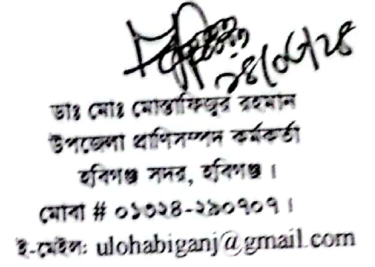 ২৪/০৬/২৪
ডাঃ মোঃ মোস্তাফিজুর রহমান
উপজেলা প্রাণিসম্পদ কর্মকর্তা
হবিগঞ্জ সদর, হবিগঞ্জ ।
মোবা # ০১৩২৪-২৯০৭০৭ ।
ই-মেইল: ulohabiganj@gmail.com